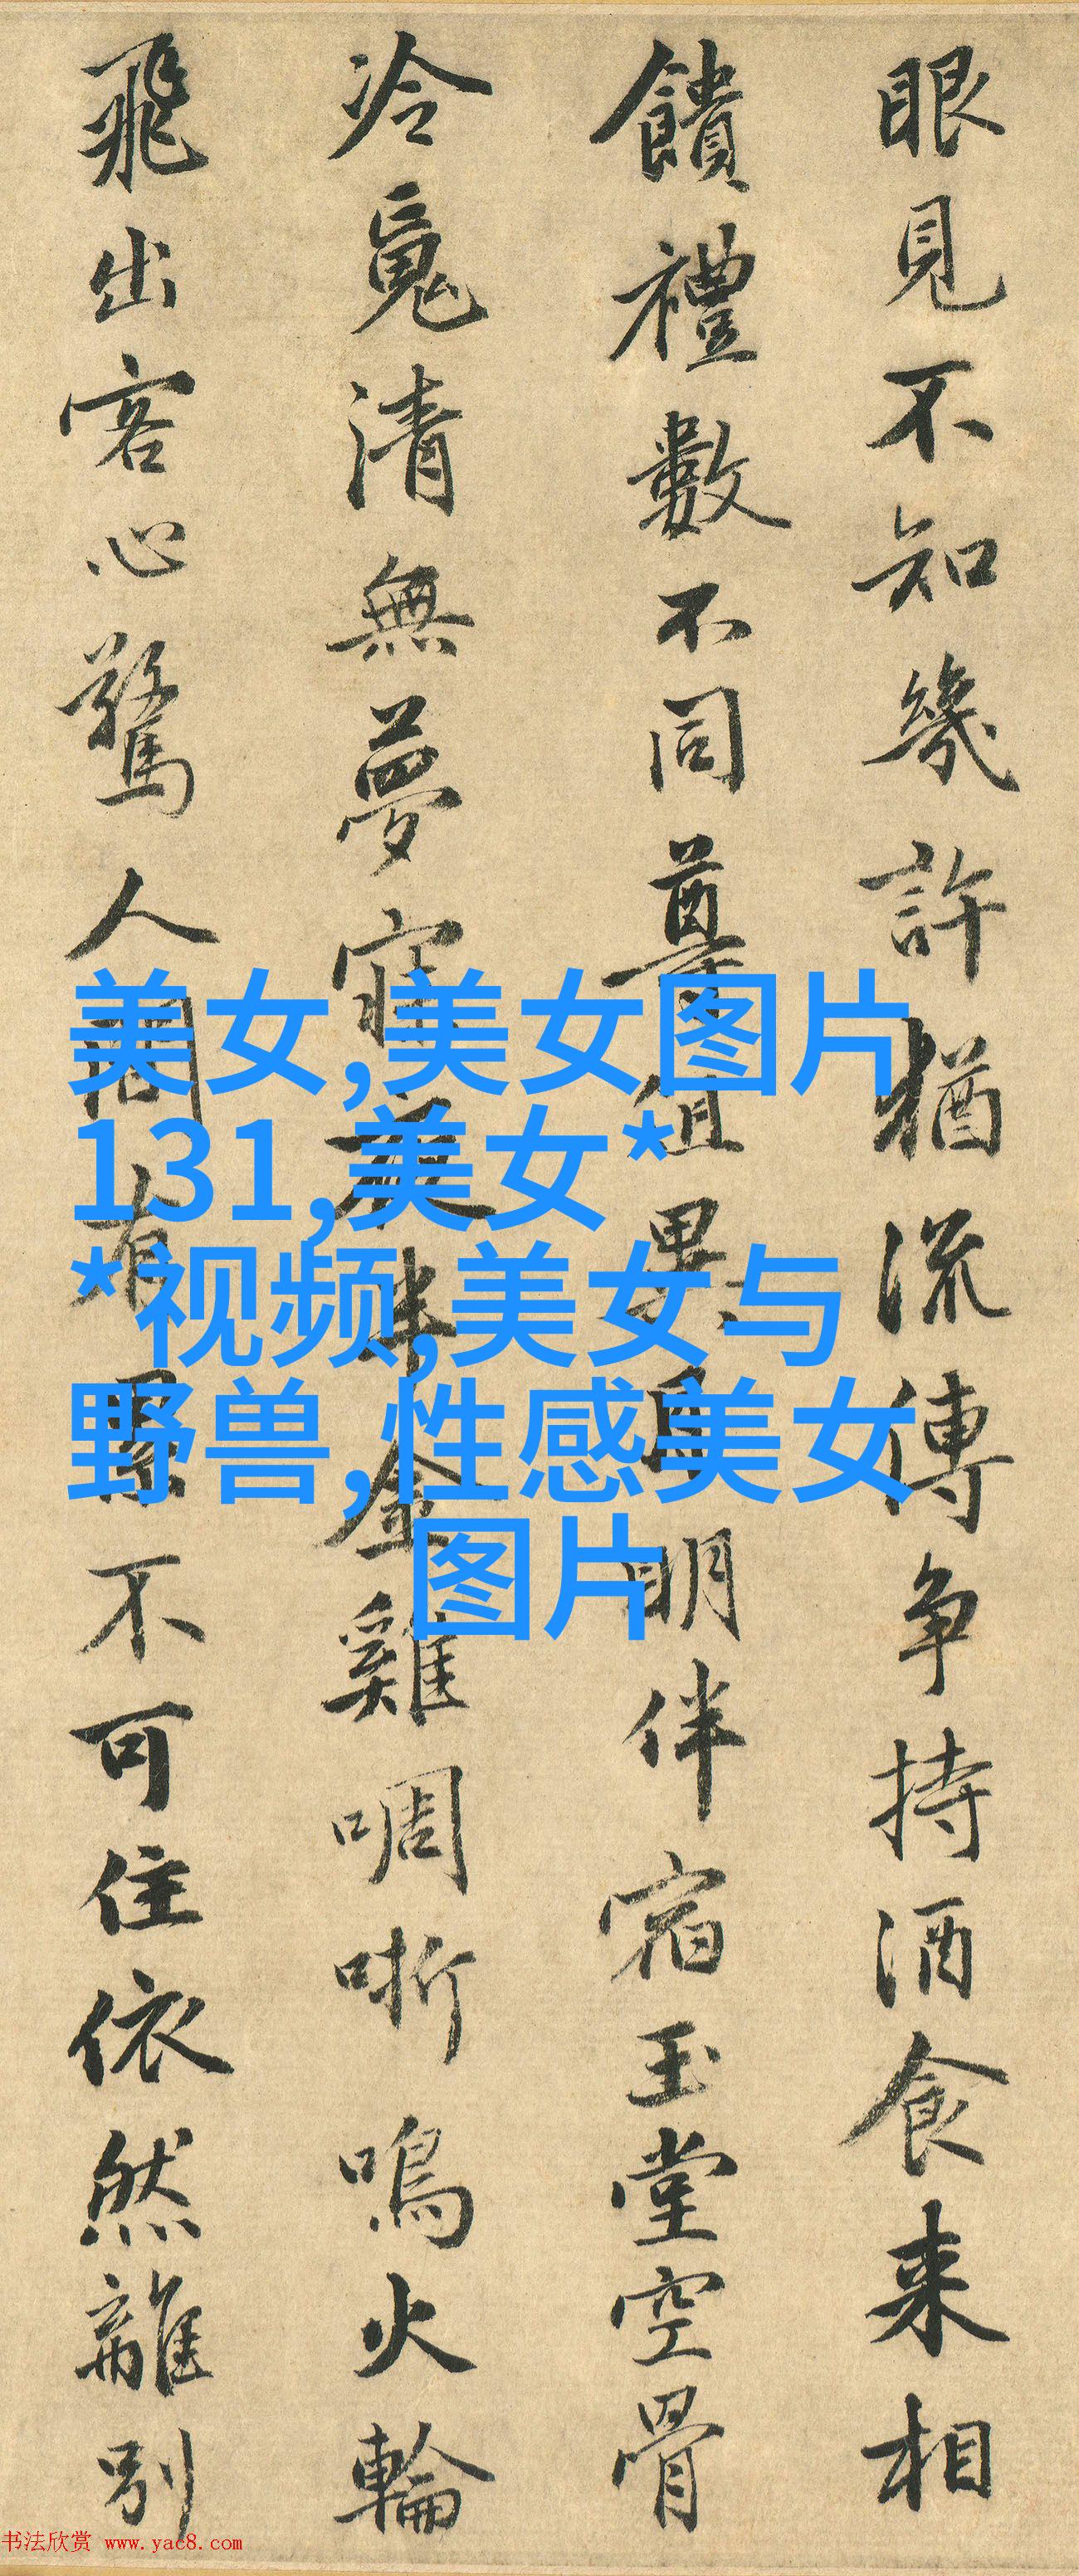 眼見不知幾許猶流傳争持酒食来相
饋禮數不同尊俎異月明伴宿玉堂空骨
冷魂清無夢寐夜半金雞啁哳鳴火輪
飛出客心驚人間有累不可住依然離別
美女,美女图片
131,美女*
*视频,美女与
野兽,性感美女
图片
书法欣赏 www.yac8.com